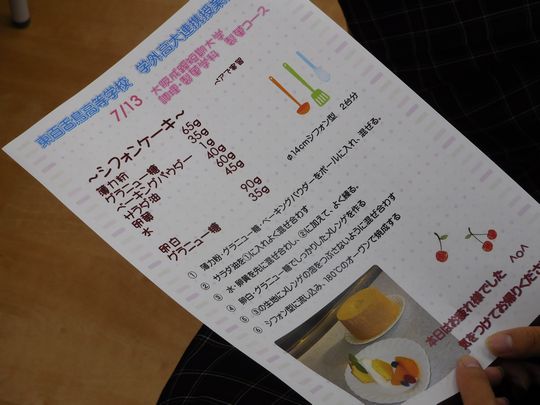 東百舌鳥高等学校 学外高大連携授業
7/13 大阪成蹊短期大学
調理・製菓学科 製菓コース
ペアで実習
～シフォンケーキ～
φ14cmシフォン型 2台分
薄力粉 65g
グラニュー糖 35g
ベーキングパウダー 1g
サラダ油 40g
卵黄 60g
水 45g
卵白 90g
グラニュー糖 35g
① 薄力粉・グラニュー糖・ベーキングパウダーをボールに入れ、混ぜる。
② サラダ油を①に入れよく混ぜ合わす
③ 水・卵黄を先に混ぜ合わし、②に加えて、よく練る。
④ 卵白・グラニュー糖でしっかりしたメレンゲを作る
⑤ ③の生地にメレンゲの泡をつぶさないように混ぜ合わす
⑥ シフォン型に流し込み、180℃のオーブンで焼成する
本日はお疲れ様でした ^o^
気をつけてお帰りください